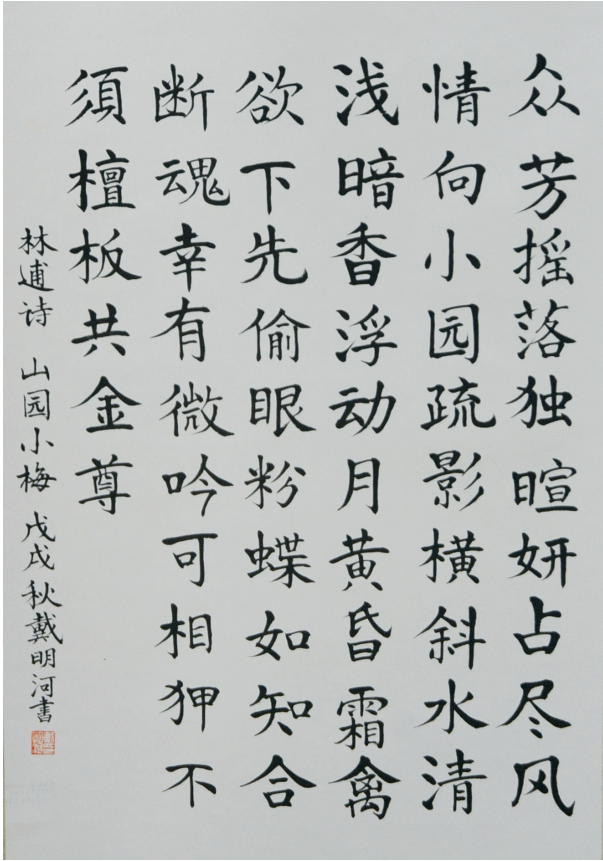 众芳摇落独暄妍占尽风
情向小园疏影横斜水清
浅暗香浮动月黄昏霜禽
欲下先偷眼粉蝶如知合
断魂幸有微吟可相狎不
須檀板共金尊
林逋诗 山园小梅 戊戌秋戴明河書